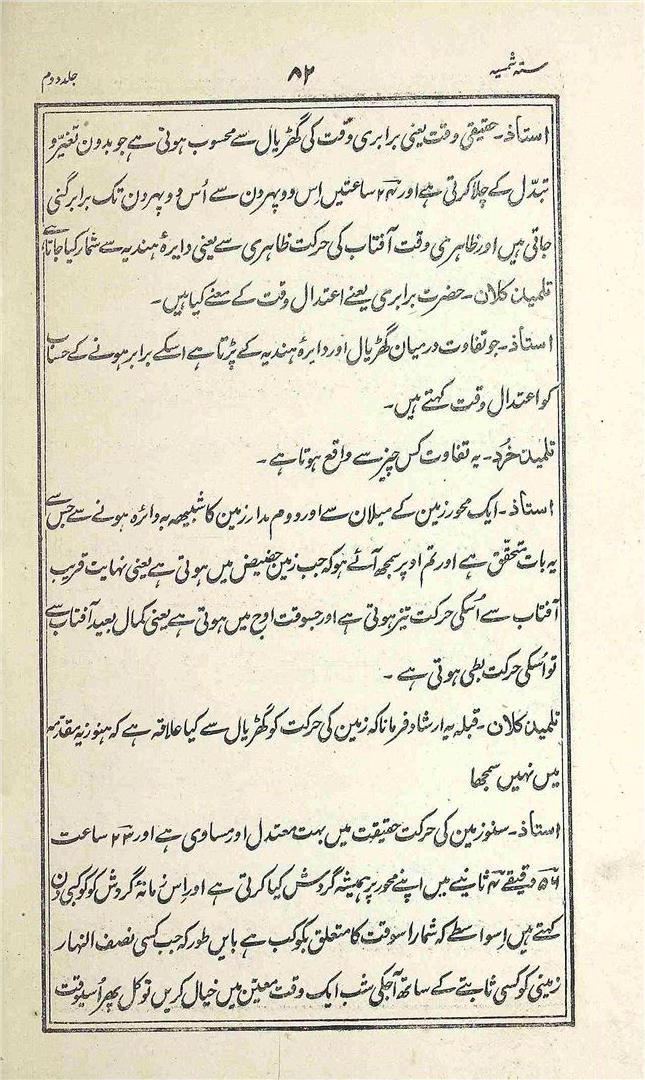 ستہ شمسیہ ۸۲ جلد دوم
استاذ۔ حقیقی وقت یعنی برابری وقت کی گھڑیال سے محسوب ہوتی ہے جو بدون تغیر و
تبدّل کے چلا کرتی ہے اور ۲۴ ساعتیں اِس دوپہر دن سے اُس دوپہر دن تک برابر گنی
جاتی ہیں اور ظاہری وقت آفتاب کی حرکت ظاہری سے یعنی دایرۂ ہندیہ سے شمار کیا جاتا ہے
تلمیذ کلان۔ حضرت برابری یعنے اعتدال وقت کے معنے کیا ہیں۔
استاذ۔ جو تفاوت درمیان گھڑیال اور دایرۂ ہندیہ کے پڑتا ہے اسکے برابر ہونے کے حساب
کو اعتدال وقت کہتے ہیں۔
تلمیذ خُرد۔ یہ تفاوت کس چیز سے واقع ہوتا ہے۔
استاذ۔ ایک محور زمین کے میلان سے اور دوم مدار زمین کا شبیھہ بہ دائرہ ہونے سے جس سے
یہ بات متحقق ہے اور تم اوپر سمجھ آئے ہو کہ جب زمین حضیض میں ہوتی ہے یعنی نہایت قریب
آفتاب سے اُسکی حرکت تیز ہوتی ہے اور جسوقت اوج میں ہوتی ہے یعنی کمال بعید آفتاب سے
تو اُسکی حرکت بطی ہوتی ہے۔
تلمیذ کلان۔ قبلہ یہ ارشاد فرمانا کہ زمین کی حرکت کو گھڑیال سے کیا علاقہ ہے کہ ہنوز یہ مقدمہ
میں نہیں سمجھا
استاذ۔ سنو زمین کی حرکت حقیقت میں بہت معتدل اور مساوی ہے اور ۲۳ ساعت
۵۶ دقیقے ۴ ثانیے میں اپنے محور پر ہمیشہ گردش کیا کرتی ہے اور اِس زمانۂ گردش کو کوکبی دن
کہتے ہیں اِسواسطے کہ شمار اسوقت کا متعلق بکوکب ہے بایں طور کہ جب کسی نصف النہار
زمینی کو کسی ثابتے کے ساتھ آجکی شب ایک وقت معین میں خیال کریں تو کل پھر اُسیوقت